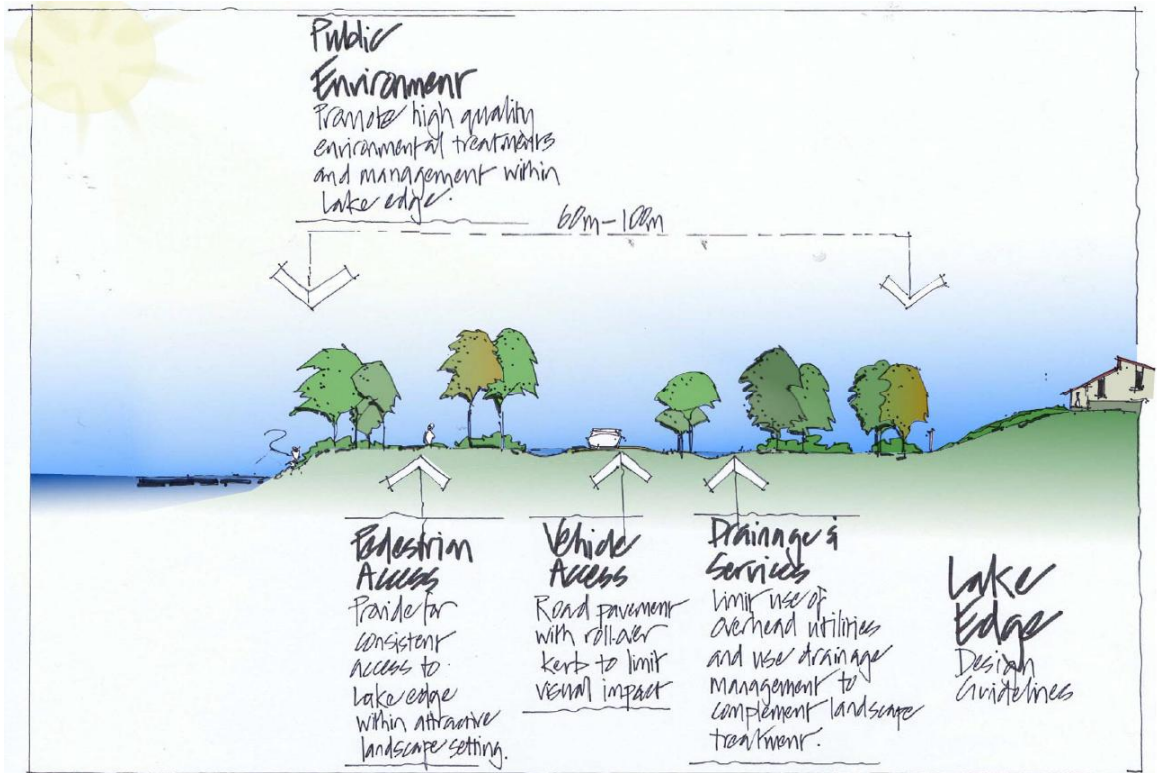 Public
Environment
Promote high quality
environmental treatments
and management within
Lake edge.
60m-100m
Pedestrian
Access
Provide for
consistent
access to
Lake edge
within attractive
landscape setting.
Vehicle
Access
Road pavement
with roll-over
kerb to limit
visual impact
Drainage &
Services
Limit use of
overhead utilities
and use drainage
management to
complement landscape
treatment.
Lake
Edge
Design
Guidelines